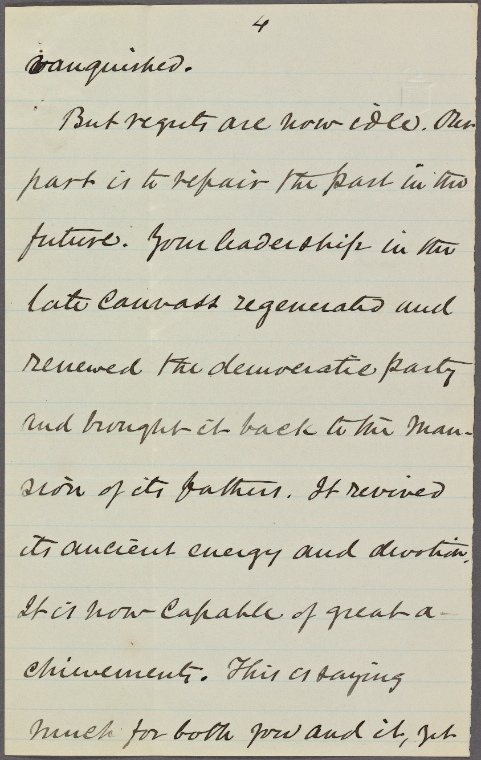 4
vanquished.
But regrets are now idle. Our
part is to repair the past in the
future. Your leadership in the
late canvass regenerated and
renewed the democratic party
and brought it back to the man-
sion of its fathers. It revived
its ancient energy and devotion.
It is now capable of great a-
chievements. This is saying
much for both you and it, yet